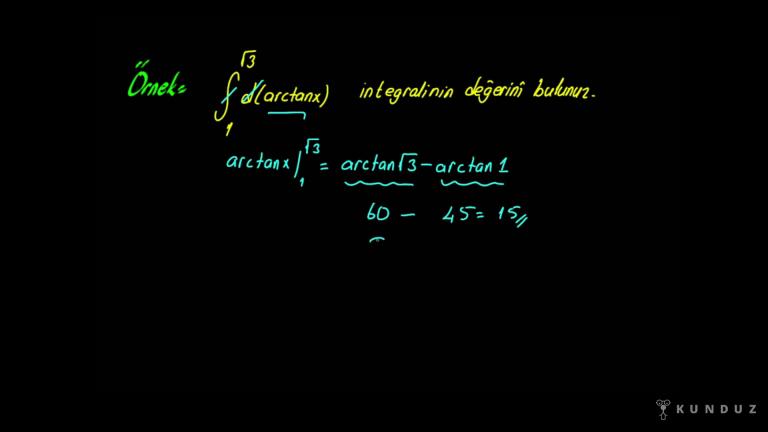 Örnek= ∫₁^√3 d(arctanx) integralinin değerini bulunuz.
arctanx|₁^√3 = arctan√3 - arctan1
60 - 45 = 15//
KUNDUZ